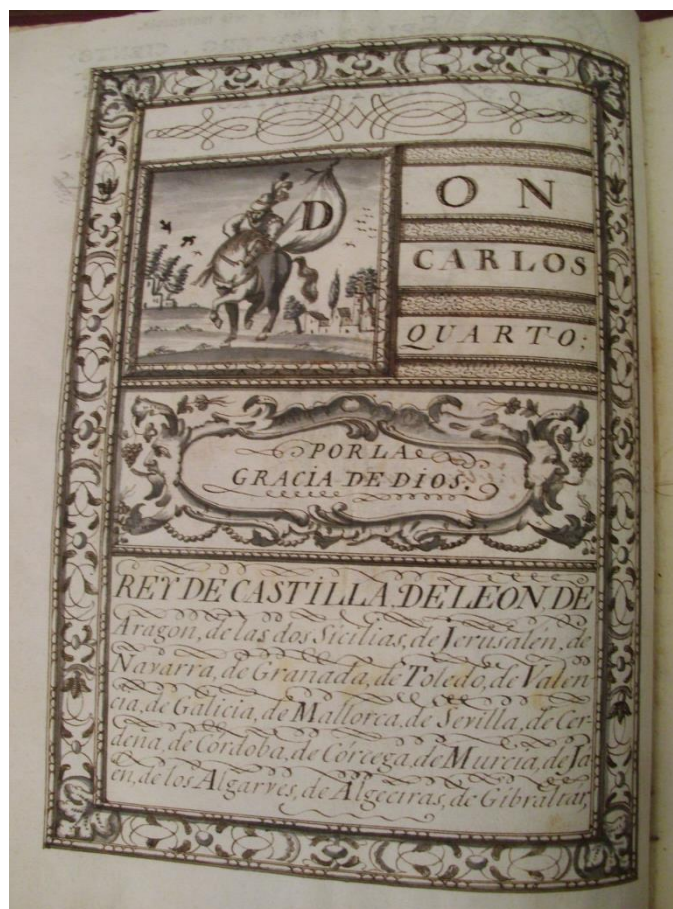 DON
CARLOS
QUARTO;
POR LA
GRACIA DE DIOS.
REY DE CASTILLA, DE LEON, DE
Aragon, de las dos Sicilias, de Jerusalén, de
Navarra, de Granada, de Toledo, de Valen
cia, de Galicia, de Mallorca, de Sevilla, de Cer
deña, de Córdoba, de Córcega, de Murcia, de Ja
en, de los Algarves, de Algeciras, de Gibraltar,